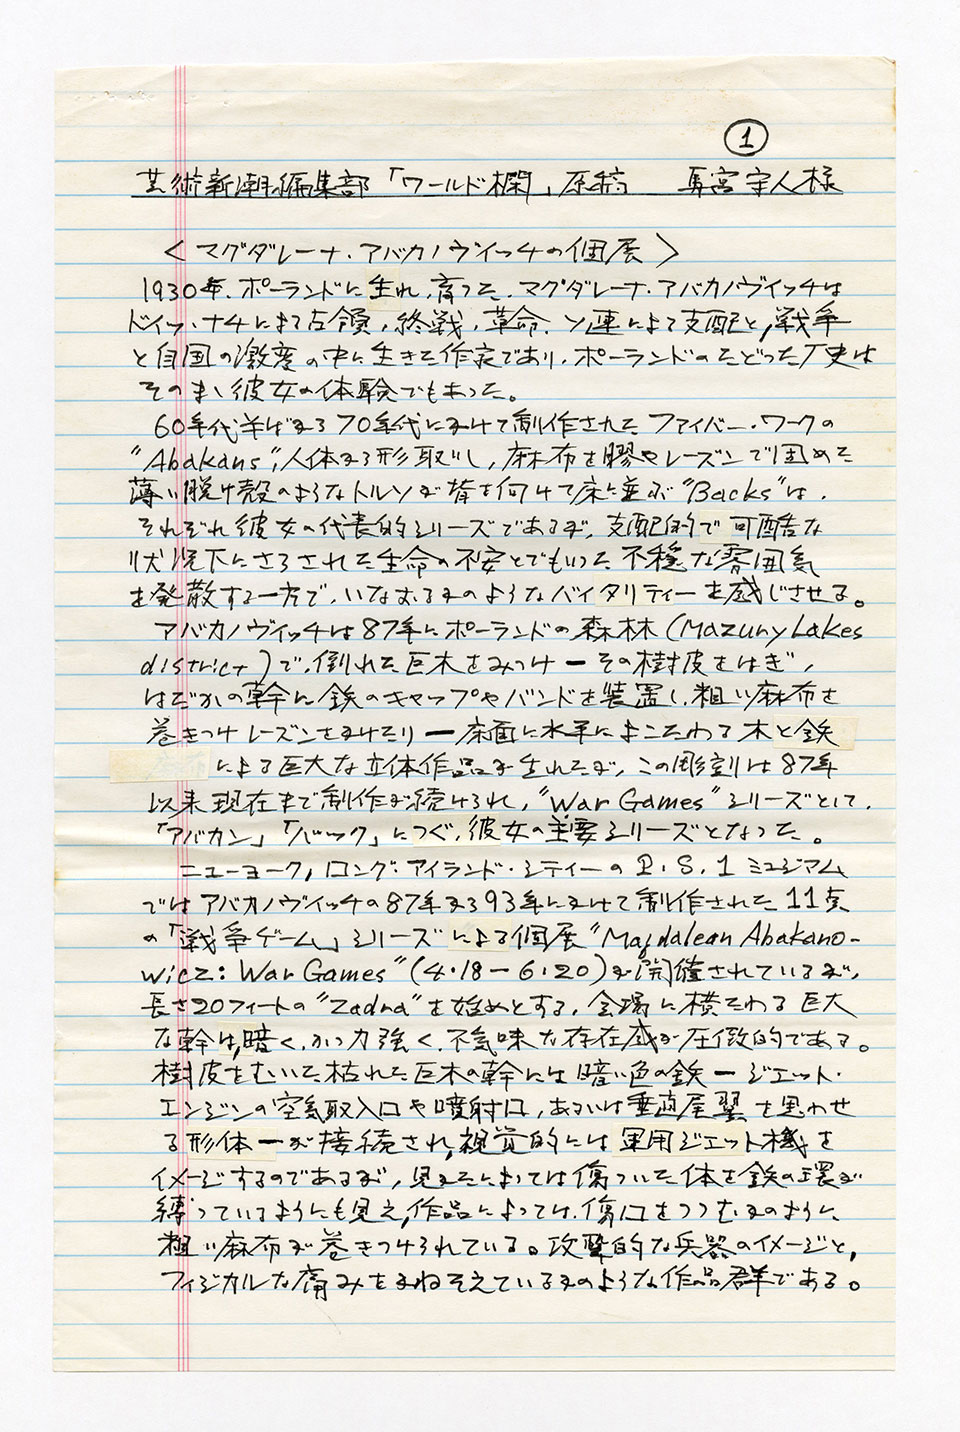 ①
芸術新潮編集部「ワールド欄」原稿 馬宮守人様
〈マグダレーナ・アバカノヴィッチの個展〉
1930年、ポーランドに生れ、育った、マグダレーナ・アバカノヴィッチは
ドイツ・ナチによる占領、終戦、革命、ソ連による支配と、戦争
と自国の激変の中に生きた作家であり、ポーランドのたどった歴史は
そのまゝ彼女の体験でもあった。
60年代半ばから70年代にかけて制作されたファイバー・ワークの
"Abakans"、人体から形取りし、麻布を膠やレーズンで固めた
薄い脱け殻のようなトルソが背を向けて床に並ぶ"Backs"は、
それぞれ彼女の代表的シリーズであるが、支配的で苛酷な
状況下にさらされた生命の不安とでもいった不穏な雰囲気
を発散する一方で、いなおるかのようなバイタリティーを感じさせる。
アバカノヴィッチは87年にポーランドの森林(Mazury Lakes
district)で、倒れた巨木をみつけ ー その樹皮をはぎ、
はだかの幹に鉄のキャップやバンドを装置し、粗い麻布を
巻きつけレーズンをかけたり ー 床面に水平によこたわる木と鉄
による巨大な立体作品が生れたが、この彫刻は87年
以来現在まで制作が続けられ、"War Games"シリーズとして、
「アバカン」「バック」につぐ、彼女の主要シリーズとなった。
ニューヨーク, ロング・アイランド・シティーのP.S.1ミュジアム
ではアバカノヴィッチの87年から93年にかけて制作された11点
の「戦争ゲーム」シリーズによる個展"Majdalean Abakano-
wicz: War Games"(4・18ー6・20)が開催されているが、
長さ20フィートの"Zadra"を始めとする、会場に横たわる巨大
な幹は、暗く、かつ力強く、不気味な存在感が圧倒的である。
樹皮をむいた枯れた巨木の幹には暗い色の鉄 ー ジェット・
エンジンの空気取入口や噴射口、あるいは垂直尾翼を思わせ
る形体 ー が接続され、視覚的には軍用ジェット機を
イメージするのであるが、見かたによっては傷ついた体を鉄の環が
縛っているようにも見え、作品によっては、傷口をつつむかのように
粗い麻布が巻きつけられている。攻撃的な兵器のイメージと、
フィジカルな痛みをかねそえているかのような作品群である。